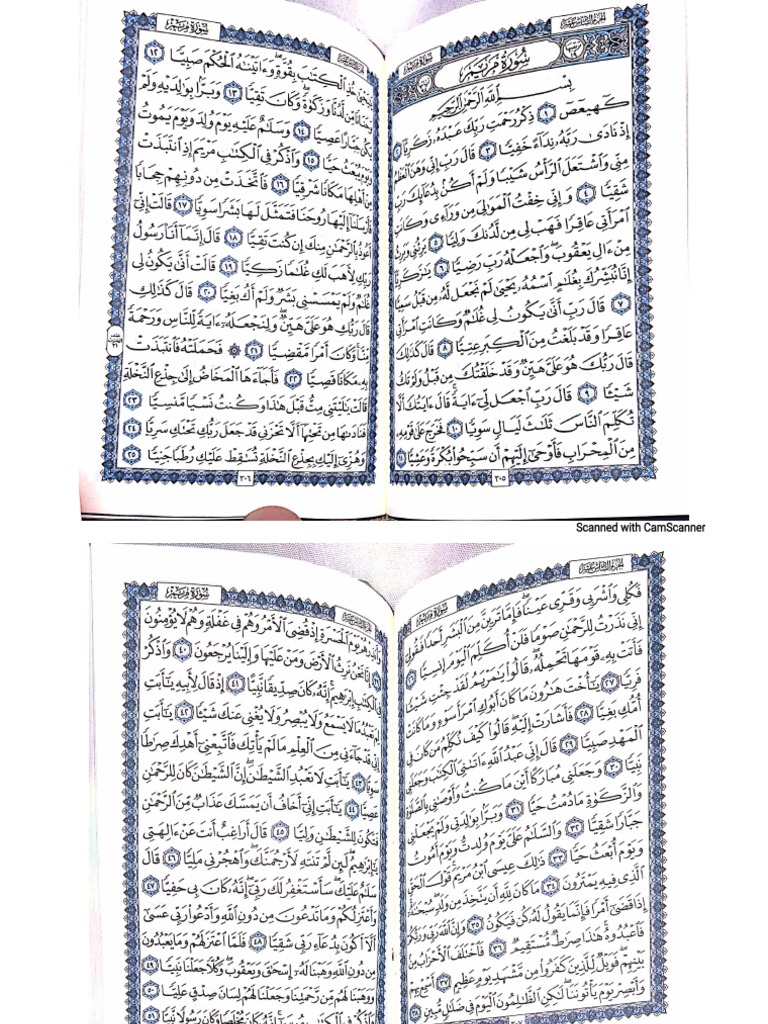 الجزء السادس عشر
سورة مريم
سورة مريم
بسم الله الرحمن الرحيم
كهيعص ١ ذكر رحمت ربك عبده زكريا ٢
إذ نادى ربه نداء خفيا ٣ قال رب إني وهن العظم
مني واشتعل الرأس شيبا ولم أكن بدعائك رب
شقيا ٤ وإني خفت الموالي من وراءي وكانت
امرأتي عاقرا فهب لي من لدنك وليا ٥ يرثني ويرث
من ءال يعقوب واجعله رب رضيا ٦ يزكريا
إنا نبشرك بغلم اسمه يحيى لم نجعل له من قبل سميا
٧ قال رب أنى يكون لي غلم وكانت امرأتي
عاقرا وقد بلغت من الكبر عتيا ٨ قال كذلك
قال ربك هو علي هين وقد خلقتك من قبل ولم تك
شيئا ٩ قال رب اجعل لي ءاية قال ءايتك ألا
تكلم الناس ثلث ليال سويا ١٠ فخرج على قومه
من المحراب فأوحى إليهم أن سبحوا بكرة وعشيا ١١
٣٠٥
سورة مريم
ييحيى خذ الكتب بقوة وءاتينه الحكم صبيا ١٢
وحنانا من لدنا وزكوة وكان تقيا ١٣ وبرا بولديه ولم
يكن جبارا عصيا ١٤ وسلم عليه يوم ولد ويوم يموت
ويوم يبعث حيا ١٥ واذكر في الكتب مريم إذ انتبذت
من أهلها مكانا شرقيا ١٦ فاتخذت من دونهم حجابا
فأرسلنا إليها روحنا فتمثل لها بشرا سويا ١٧ قالت إني
أعوذ بالرحمن منك إن كنت تقيا ١٨ قال إنما أنا رسول
ربك لأهب لك غلما زكيا ١٩ قالت أنى يكون لي
غلم ولم يمسسني بشر ولم أك بغيا ٢٠ قال كذلك
قال ربك هو علي هين ولنجعله ءاية للناس ورحمة
منا وكان أمرا مقضيا ٢١ ۞ فحملته فانتبذت
به مكانا قصيا ٢٢ فأجاءها المخاض إلى جذع النخلة
قالت يليتني مت قبل هذا وكنت نسيا منسيا ٢٣
فنادىها من تحتها ألا تحزني قد جعل ربك تحتك سريا ٢٤
وهزي إليك بجذع النخلة تسقط عليك رطبا جنيا ٢٥
٣٠٦
Scanned with CamScanner
الجزء السادس عشر
سورة مريم
فكلي واشربي وقري عينا فإما ترين من البشر أحدا فقولي
إني نذرت للرحمن صوما فلن أكلم اليوم إنسيا ٢٦
فأتت به قومها تحمله قالوا يمريم لقد جئت شيئا
فريا ٢٧ يأخت هرون ما كان أبوك امرأ سوء وما كانت
أمك بغيا ٢٨ فأشارت إليه قالوا كيف نكلم من كان في
المهد صبيا ٢٩ قال إني عبد الله ءاتىني الكتب وجعلني
نبيا ٣٠ وجعلني مباركا أين ما كنت وأوصني بالصلوة
والزكوة ما دمت حيا ٣١ وبرا بولدتي ولم يجعلني
جبارا شقيا ٣٢ والسلم علي يوم ولدت ويوم أموت
ويوم أبعث حيا ٣٣ ذلك عيسى ابن مريم قول الحق
الذي فيه يمترون ٣٤ ما كان لله أن يتخذ من ولد سبحنه
إذا قضى أمرا فإنما يقول له كن فيكون ٣٥ وإن الله ربي وربكم
فاعبدوه هذا صرط مستقيم ٣٦ فاختلف الأحزاب من
بينهم فويل للذين كفروا من مشهد يوم عظيم ٣٧ أسمع بهم
وأبصر يوم يأتوننا لكن الظلمون اليوم في ضلل مبين ٣٨
سورة مريم
وأنذرهم يوم الحسرة إذ قضي الأمر وهم في غفلة وهم لا يؤمنون
٣٩ إنا نحن نرث الأرض ومن عليها وإلينا يرجعون ٤٠ واذكر
في الكتب إبرهيم إنه كان صديقا نبيا ٤١ إذ قال لأبيه يأبت
لم تعبد ما لا يسمع ولا يبصر ولا يغني عنك شيئا ٤٢ يأبت
إني قد جاءني من العلم ما لم يأتك فاتبعني أهدك صرطا
سويا ٤٣ يأبت لا تعبد الشيطن إن الشيطن كان للرحمن
عصيا ٤٤ يأبت إني أخاف أن يمسك عذاب من الرحمن
فتكون للشيطن وليا ٤٥ قال أراغب أنت عن ءالهتي
يإبرهيم لئن لم تنته لأرجمنك واهجرني مليا ٤٦ قال
سلم عليك سأستغفر لك ربي إنه كان بي حفيا ٤٧
وأعتزلكم وما تدعون من دون الله وأدعوا ربي عسى
ألا أكون بدعاء ربي شقيا ٤٨ فلما اعتزلهم وما يعبدون
من دون الله وهبنا له إسحق ويعقوب وكلا جعلنا نبيا ٤٩
ووهبنا لهم من رحمتنا وجعلنا لهم لسان صدق عليا ٥٠
واذكر في الكتب موسى إنه كان مخلصا وكان رسولا نبيا ٥١